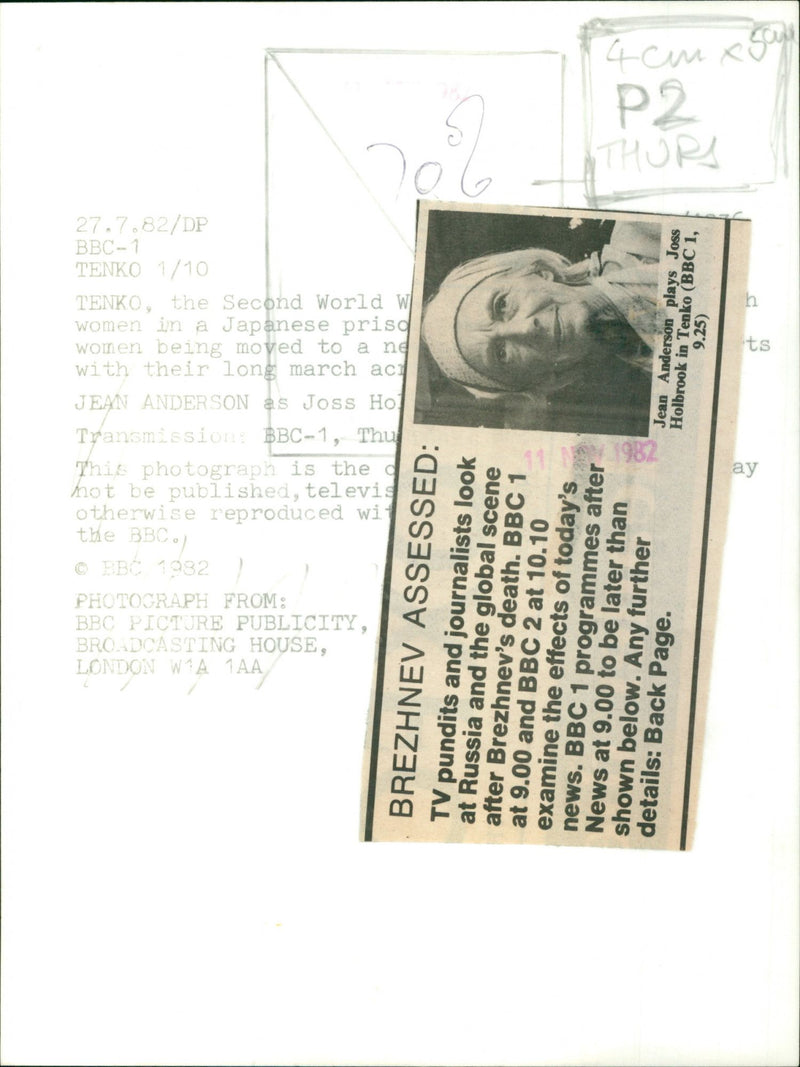 4cm x 5cm
P2
THURS
70%
27.7.82/DP
BBC-1
TENKO 1/10
TENKO, the Second World W
women in a Japanese priso
women being moved to a ne
with their long march acr
JEAN ANDERSON as Joss Hol
Transmission: BBC-1, Thu
This photograph is the c
not be published,televis
otherwise reproduced wit
the BBC.
© BBC 1982
PHOTOGRAPH FROM:
BBC PICTURE PUBLICITY,
BROADCASTING HOUSE,
LONDON W1A 1AA
h
ts
ay
Jean Anderson plays Joss
Holbrook in Tenko (BBC 1,
9.25)
11 NOV 1982
BREZHNEV ASSESSED:
TV pundits and journalists look
at Russia and the global scene
after Brezhnev's death. BBC 1
at 9.00 and BBC 2 at 10.10
examine the effects of today's
news. BBC 1 programmes after
News at 9.00 to be later than
shown below. Any further
details: Back Page.